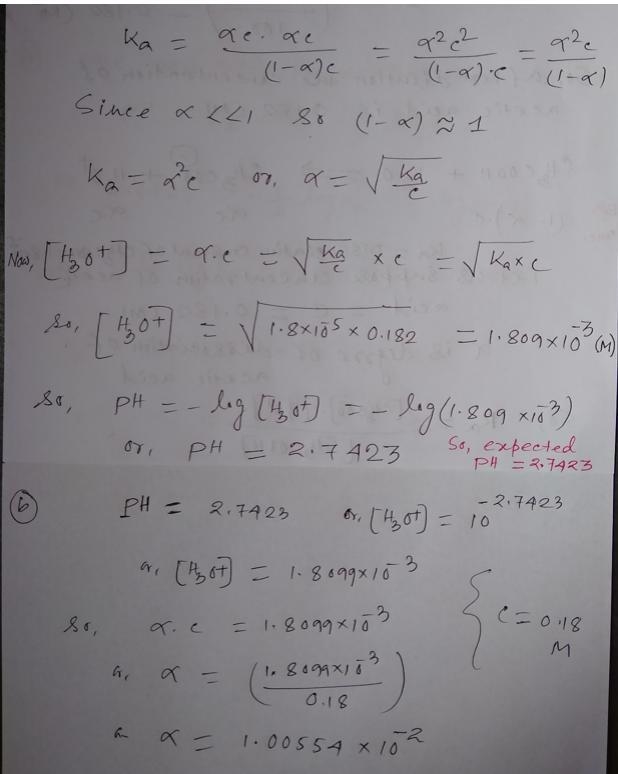 Ka = αc. αc / (1-α)c = α²c² / (1-α).c = α²c / (1-α)
Since α <<1 so (1-α) ≈ 1
Ka = α²c or, α = √(Ka/c)
Now, [H3O+] = α.c = √(Ka/c) × c = √(Ka×c)
so, [H3O+] = √(1.8×10^-5 × 0.182) = 1.809×10^-3 (M)
so, PH = - log [H3O+] = - log (1.809 ×10^-3)
or, PH = 2.7423
So, expected
PH = 2.7423
(b) PH = 2.7423 or, [H3O+] = 10^-2.7423
or, [H3O+] = 1.8099×10^-3
So, α. c = 1.8099×10^-3 { c = 0.18 M
or, α = (1.8099×10^-3 / 0.18)
or α = 1.00554 × 10^-2